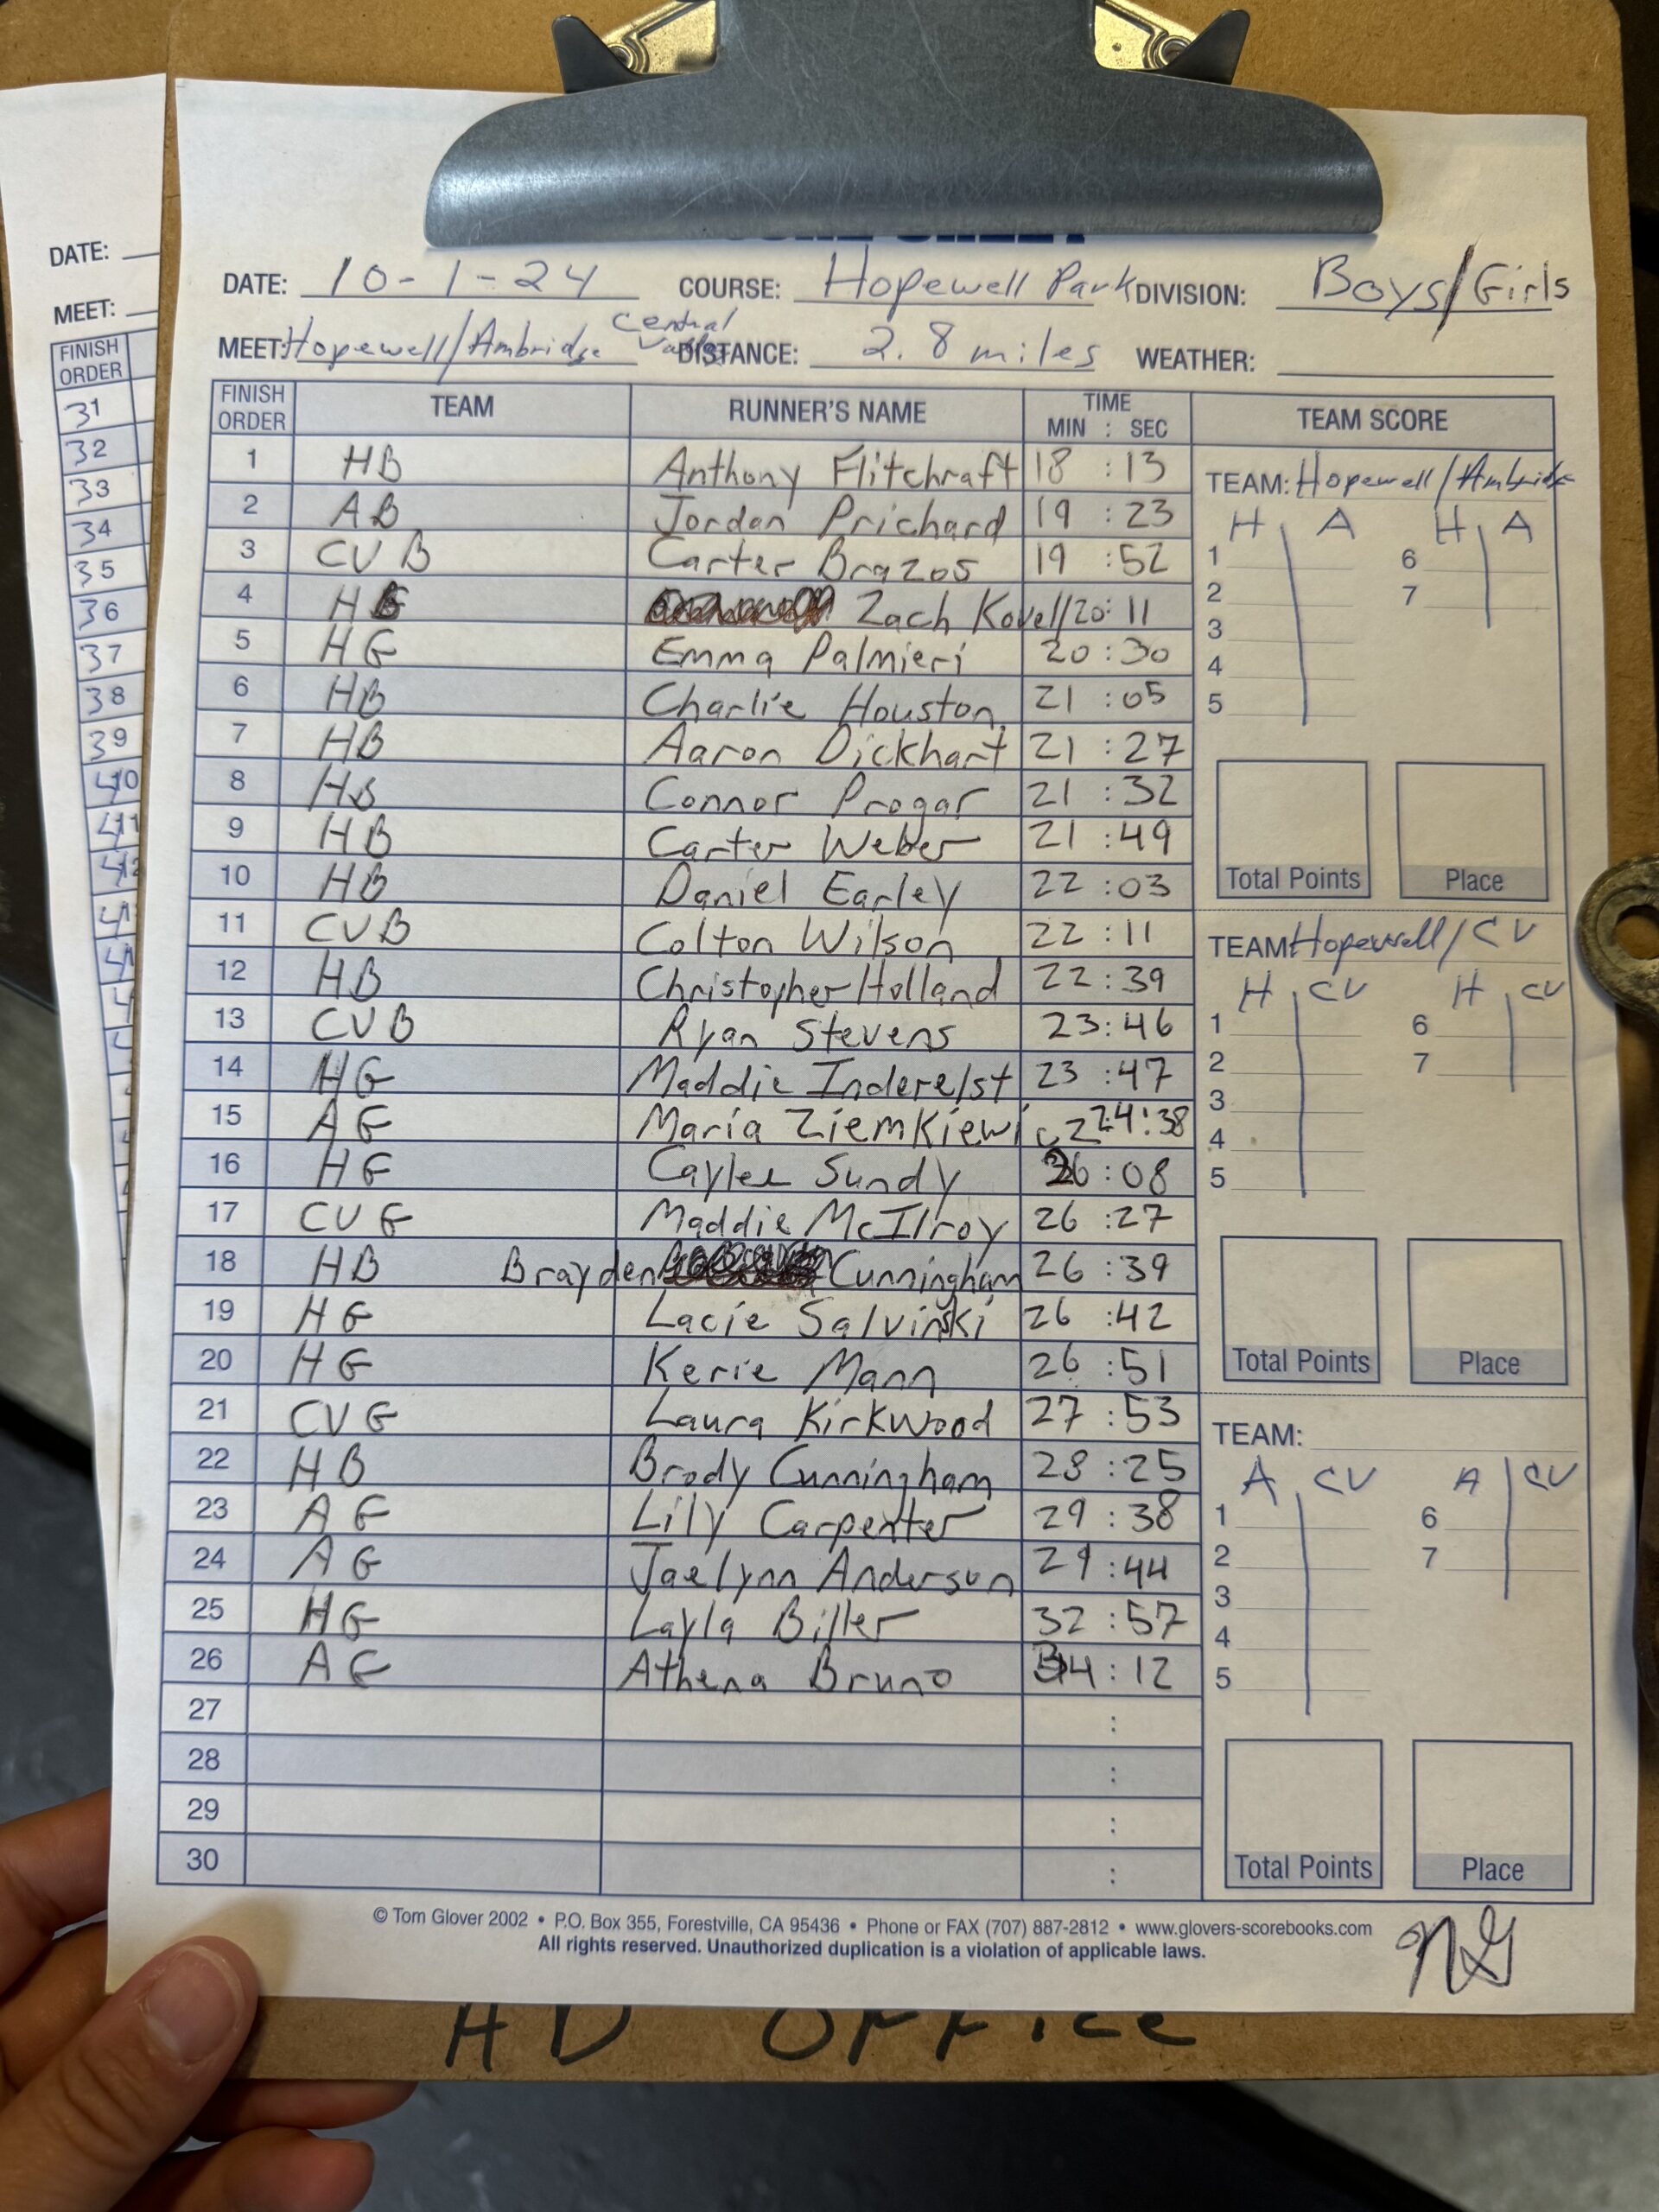 DATE: 10-1-24 COURSE: Hopewell Park DIVISION: Boys/Girls
MEET: Hopewell/Ambridge Central Valley DISTANCE: 2.8 miles WEATHER:
FINISH ORDER TEAM RUNNER'S NAME TIME MIN : SEC TEAM SCORE
1 HB Anthony Flitchraft 18 :13
2 AB Jordan Prichard 19 :23
3 CVB Carter Brazos 19 :52
4 HB Zach Kovell 20:11
5 HG Emma Palmieri 20:30
6 HB Charlie Houston 21 :05
7 HB Aaron Dickhart 21 :27
8 HB Connor Progar 21 :32
9 HB Carter Weber 21 :49
10 HB Daniel Earley 22 :03
11 CVB Colton Wilson 22 :11
12 HB Christopher Holland 22 :39
13 CVB Ryan Stevens 23:46
14 HG Maddie Inderelst 23 :47
15 AG Maria Ziemkiewicz 24:38
16 HG Caylee Sundy 26 :08
17 CVG Maddie McIlroy 26 :27
18 HB Brayden Cunningham 26 :39
19 HG Lacie Salvinski 26 :42
20 HG Kerie Mann 26 :51
21 CVG Laura Kirkwood 27 :53
22 HB Brody Cunningham 28 :25
23 AG Lily Carpenter 29 :38
24 AG Jaelynn Anderson 29 :44
25 HG Layla Biller 32 :57
26 AG Athena Bruno 34 :12
27 :
28 :
29 :
30 :
TEAM: Hopewell/Ambridge
H A H A
1 6
2 7
3
4
5
Total Points Place
TEAM: Hopewell/CV
H CV H CV
1 6
2 7
3
4
5
Total Points Place
TEAM:
A CV A CV
1 6
2 7
3
4
5
Total Points Place
© Tom Glover 2002 • P.O. Box 355, Forestville, CA 95436 • Phone or FAX (707) 887-2812 • www.glovers-scorebooks.com
All rights reserved. Unauthorized duplication is a violation of applicable laws.
NG
AD OFFice
DATE:
MEET:
FINISH ORDER
31
32
33
34
35
36
37
38
39
40
41
42